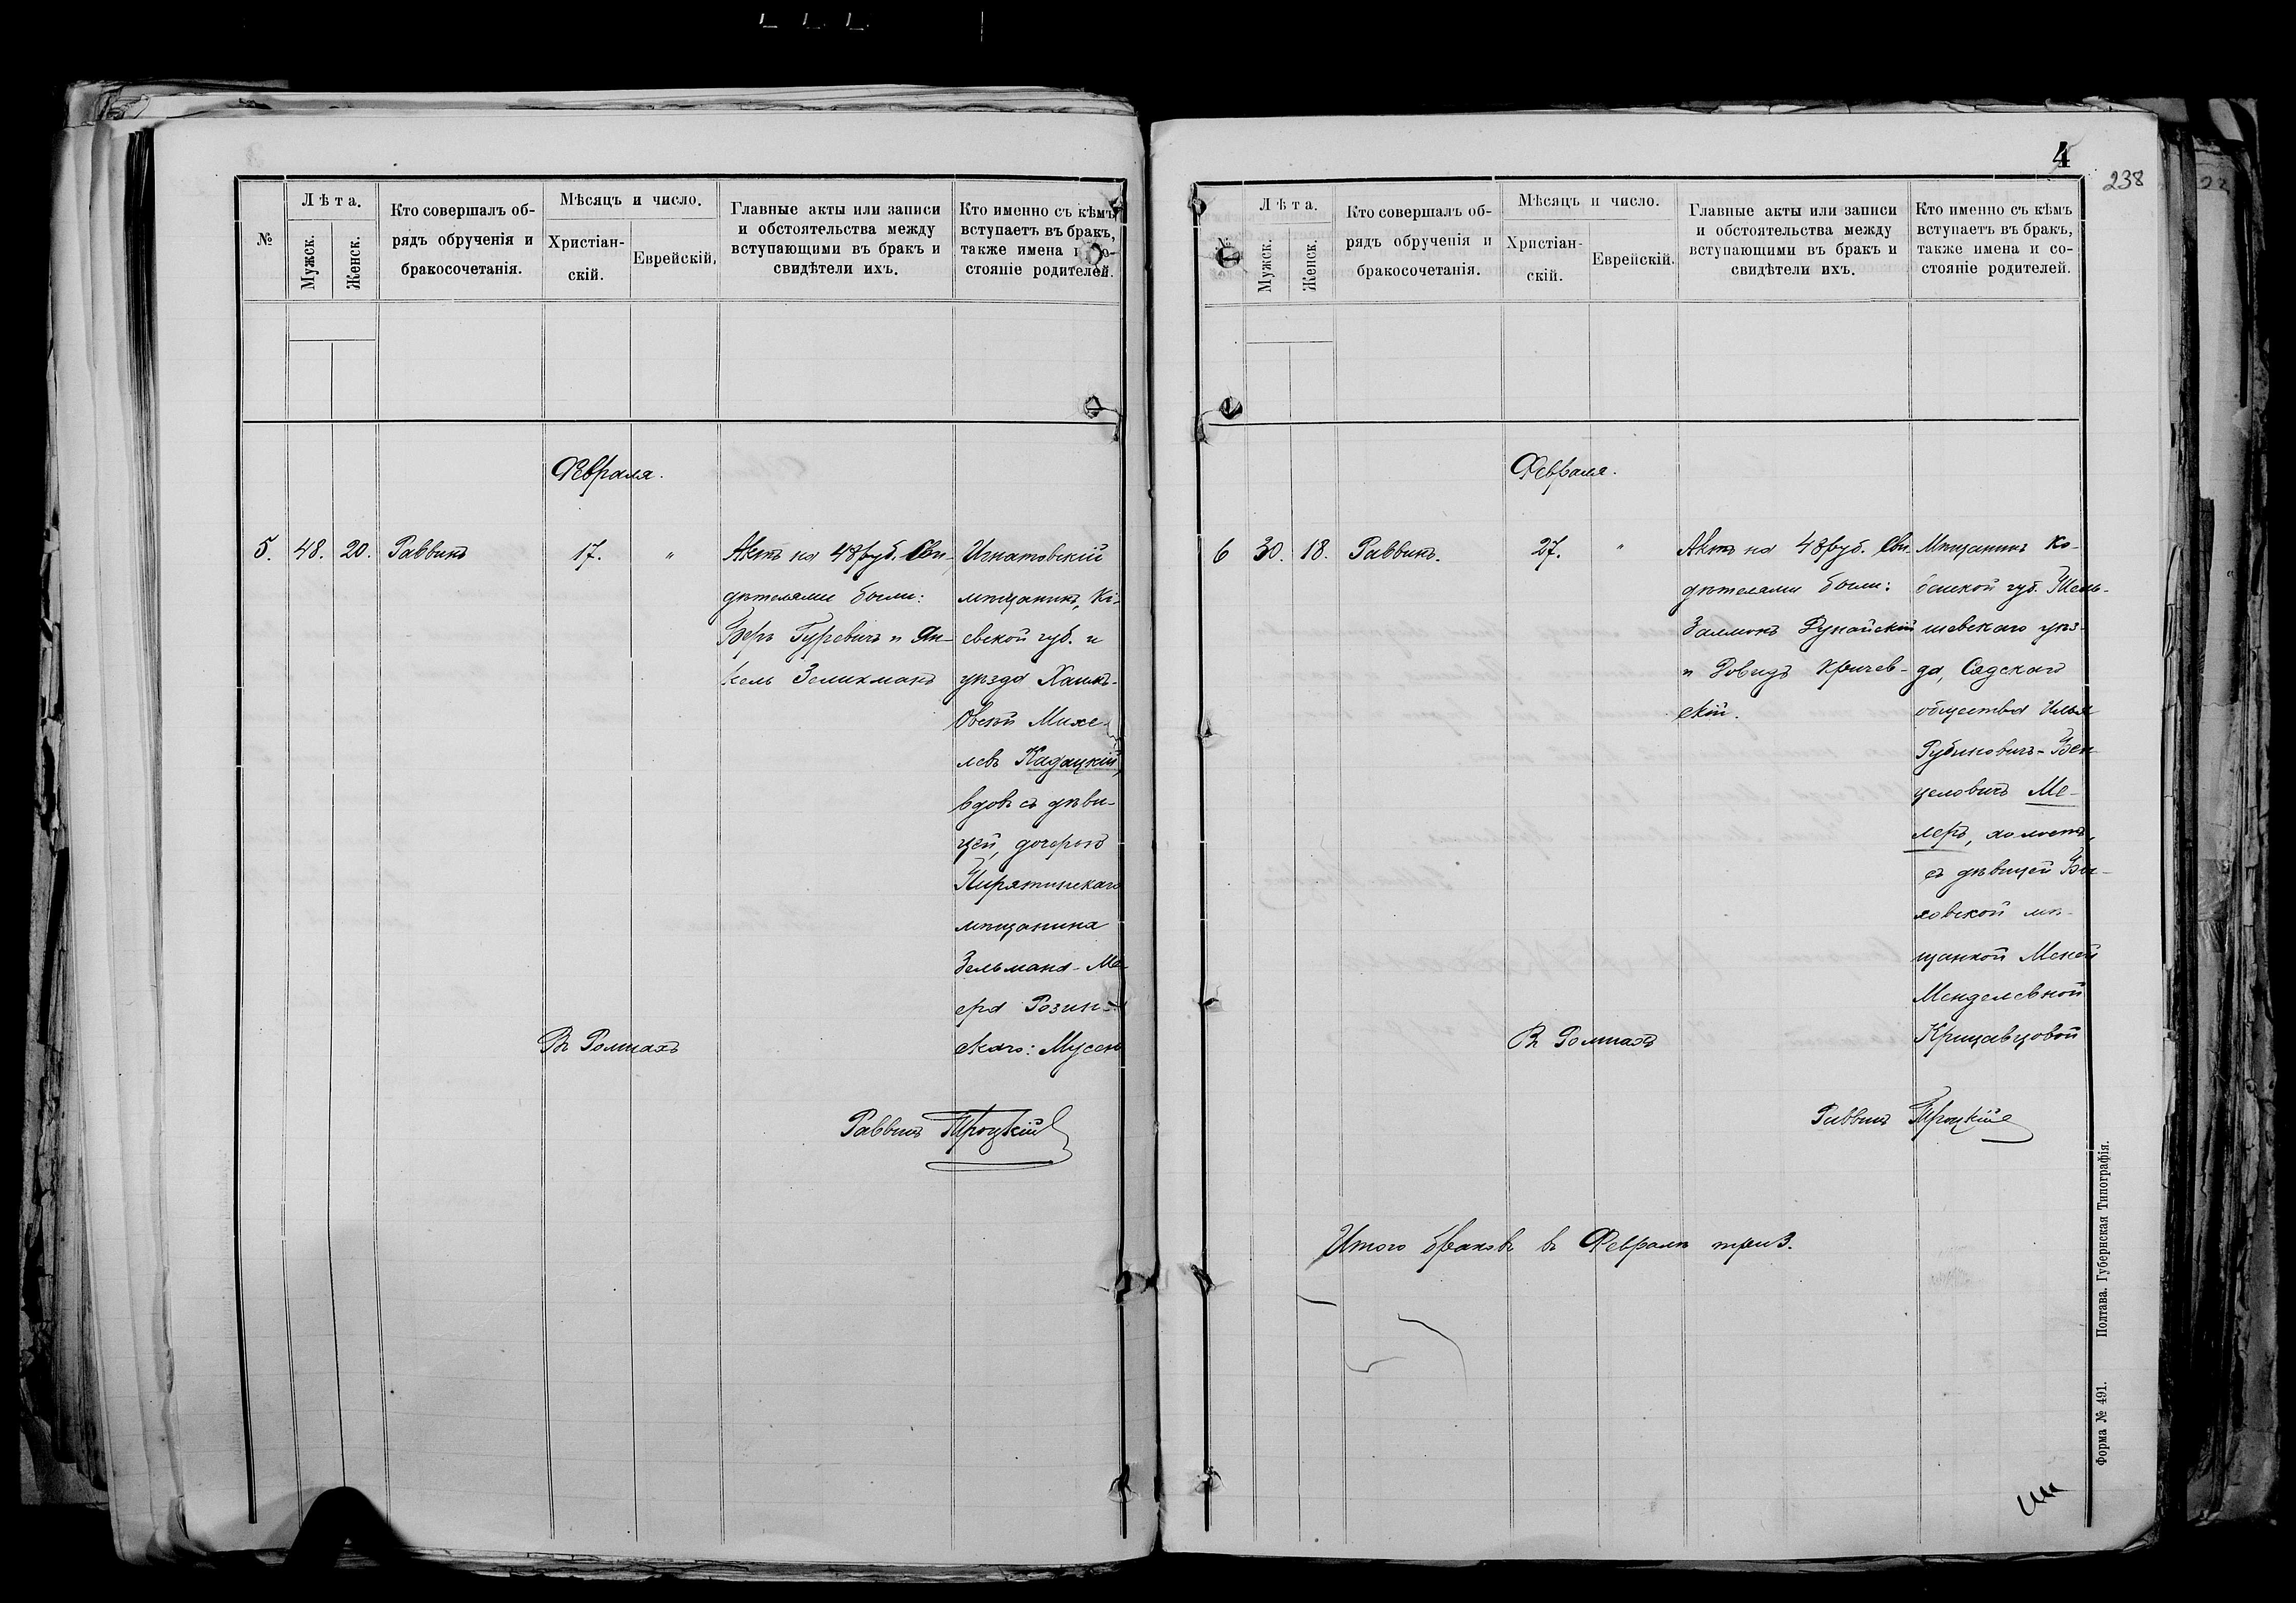 Лѣта.
Мѣсяцъ и число.
№
Мужск.
Женск.
Кто совершалъ об-
рядъ обрученія и
бракосочетанія.
Христіан-
скій.
Еврейскій.
Главные акты или записи
и обстоятельства между
вступающими въ бракъ и
свидѣтели ихъ.
Кто именно съ кѣмъ
вступаетъ въ бракъ,
также имена и со-
стояніе родителей.
Февраля.
5. 48. 20. Раввинъ 17. "
Актъ на 48 руб. Сви-
дѣтелями были:
Беръ Гуревичъ и Ян-
кель Зелихманъ
Игнатовскій
мѣщанинъ, Кі-
евской губ. и
уѣзда Хаимъ-
Овсѣй Михе-
левъ Кадацкій,
вдовъ съ дѣви-
цей, дочерью
Пирятинскаго
мѣщанина
Зельмана-Ме-
ера Розин-
скаго: Мусею
Въ Ромнахъ
Раввинъ Троцкій
4
238
Лѣта.
Мѣсяцъ и число.
№
Мужск.
Женск.
Кто совершалъ об-
рядъ обрученія и
бракосочетанія.
Христіан-
скій.
Еврейскій.
Главные акты или записи
и обстоятельства между
вступающими въ бракъ и
свидѣтели ихъ.
Кто именно съ кѣмъ
вступаетъ въ бракъ,
также имена и со-
стояніе родителей.
Февраля.
6 30. 18. Раввинъ. 27. "
Актъ на 48 руб. Сви-
дѣтелями были:
Залманъ Дунайскій
и Довидъ Кричев-
скій.
Мѣщанинъ Ко-
венской губ. Тель-
шевскаго уѣз-
да, Садскаго
общества Илья
Рубиновичъ-Бен-
целовичъ Ме-
леръ, холостъ,
съ дѣвицей Бы-
ховской мѣ-
щанкой Меней
Менделевной
Крицавцовой
Въ Ромнахъ
Раввинъ Троцкій
Итого браковъ въ Февралѣ три 3.
Форма № 491. Полтава. Губернская Типографія.